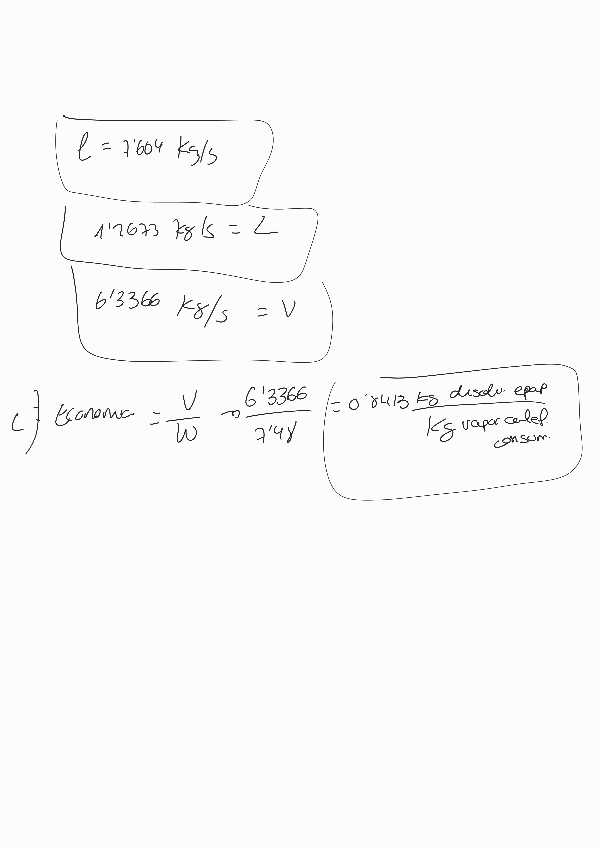 l = 7'604 kg/s
1'2673 kg/s = L
6'3366 kg/s = V
c) Economía = V/W → 6'3366/7'48 = 0'8413 kg disolv. evap / kg vapor calef. consum.